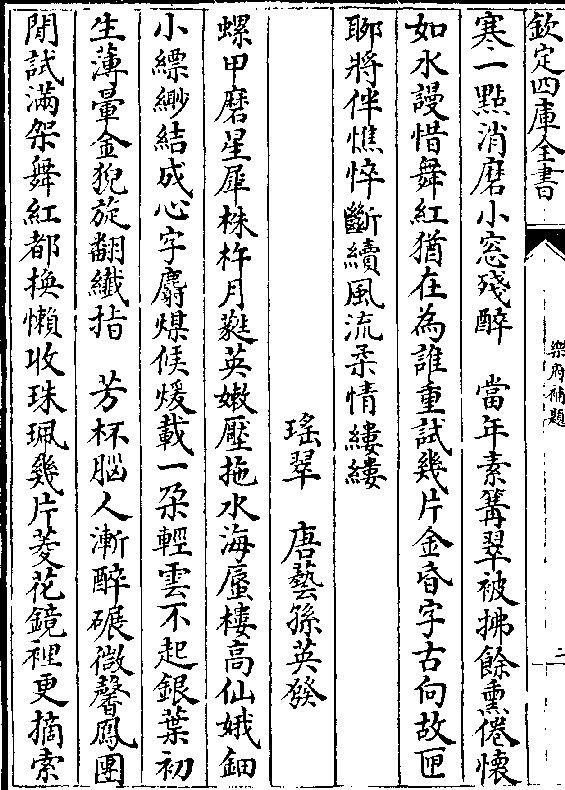 欽定四庫全書
樂府補題
二
寒一點消磨小窓殘醉　當年素篝翠被拂餘熏倦懷
如水謾惜舞紅猶在為誰重試幾片金昏字古向故匣
聊將伴憔悴斷續風流柔情縷縷
瑤翠　唐藝孫英發
螺甲磨星犀株杵月蕤英嫩壓拖水海蜃樓高仙娥鈿
小縹緲結成心字麝煤候煖載一朶輕雲不起銀葉初
生薄暈金猊旋翻纖指　芳杯腦人漸醉碾微馨鳳團
閒試滿架舞紅都換懶收珠珮幾片菱花鏡裡更摘索